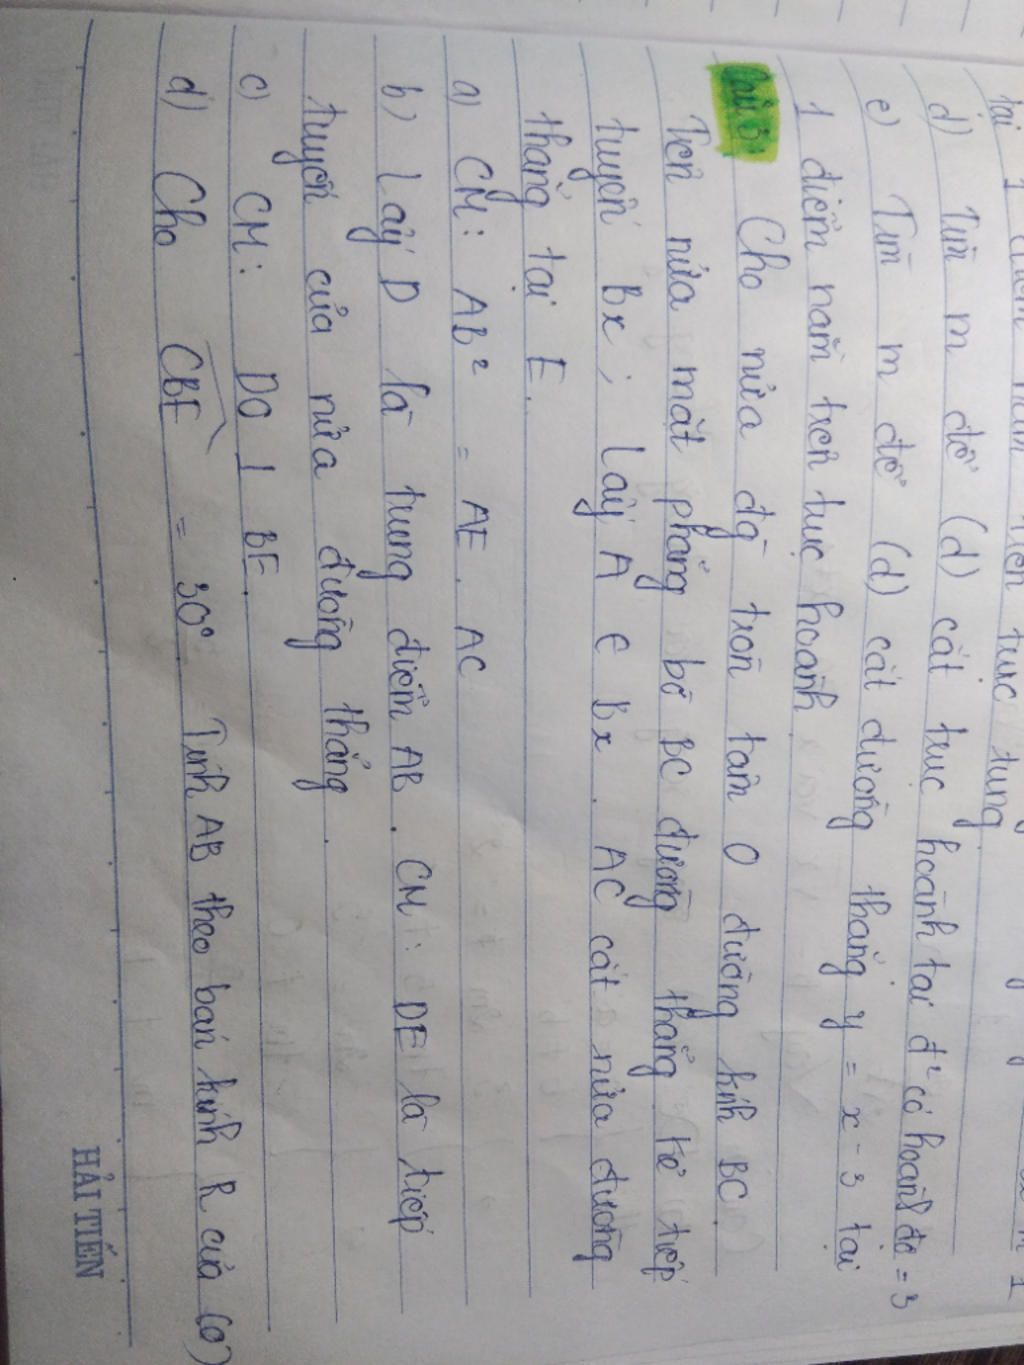 tại 1 điểm nằm trên trục tung
d) Tìm m để (d) cắt trục hoành tại đ² có hoành độ = 3
e) Tìm m để (d) cắt đường thẳng y = x - 3 tại
1 điểm nằm trên trục hoành
Câu 3: Cho nửa đg tròn tâm O đường kính BC.
Trên nửa mặt phẳng bờ BC đường thẳng kẻ tiếp
tuyến Bx; Lấy A ∈ Bx. AC cắt nửa đường
thẳng tại E.
a) CM: AB² = AE. AC
b) Lấy D là trung điểm AB. CM: DE là tiếp
tuyến của nửa đường thẳng.
c) CM: DO ⊥ BE.
d) Cho CBE = 30°. Tính AB theo bán kính R của (O)
HẢI TIẾN